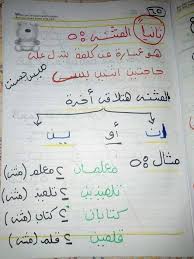 ثانيا المثنى :
هو عبارة عن كلمة تدل على
حاجتين اتنين بنسمي
المثنى هتلاقي أخرة
ان أو ين
مثال :
معلمان ← معلم (مثنى)
تلميذين ← تلميذ (مثنى)
كتابان ← كتاب (مثنى)
قلمين ← قلم (مثنى)